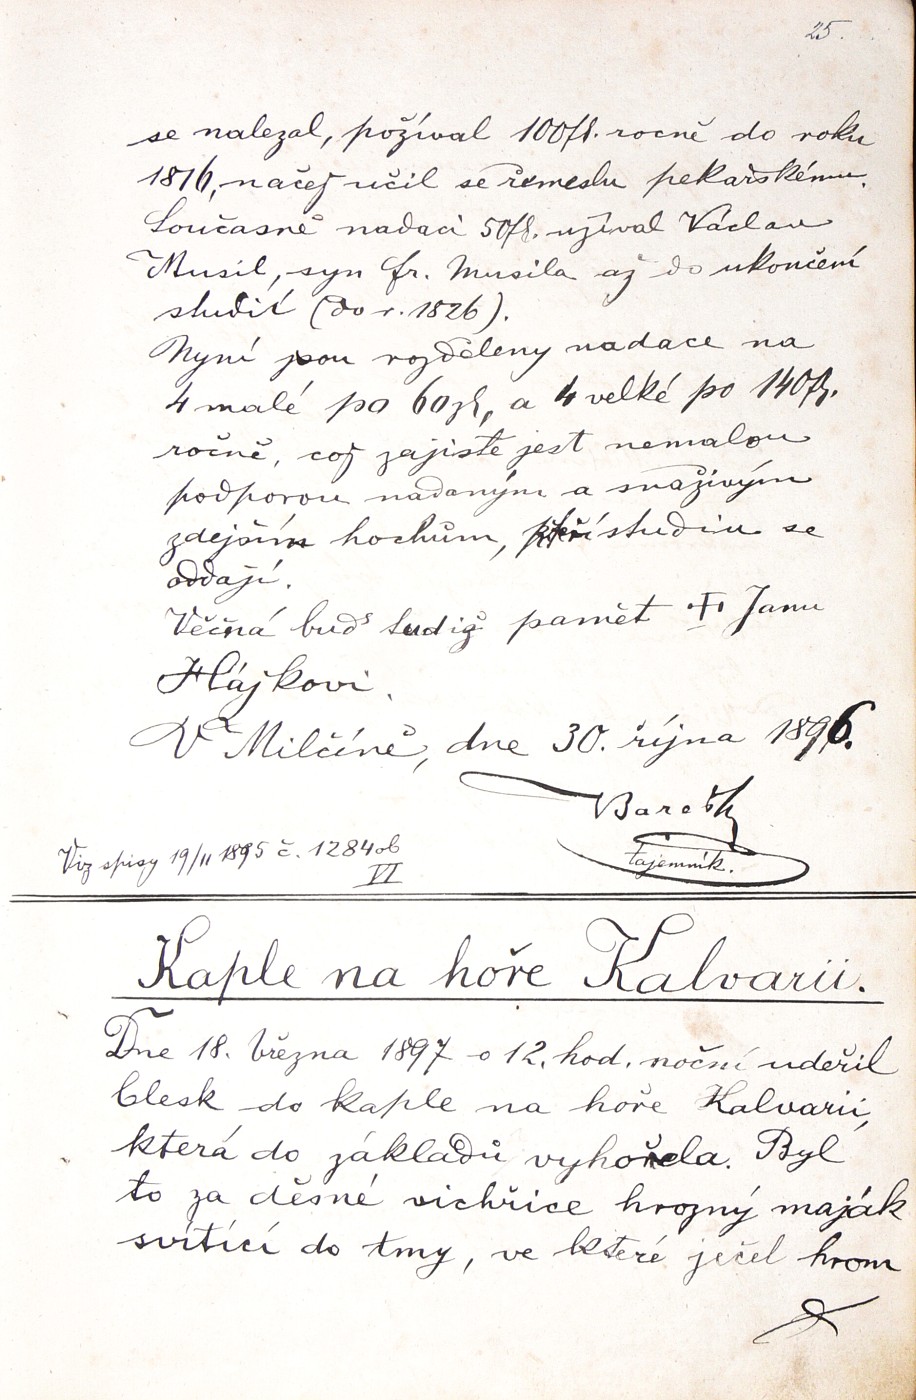 25.
se nalezal, požíval 100 fl. ročně do roku
1816, načež učil se řemeslu pekařskému.
Současně nadaci 50 fl. užíval Václav
Musil, syn fr. Musila až do ukončení
studií (do r. 1826).
Nyní jsou rozděleny nadace na
4 malé po 60 zl, a 4 velké po 140 fl.
ročně, což zajisté jest nemalou
podporou nadaným a snaživým
zdejším hochům, kteří studiu se
oddají.
Věčná buď tudiž paměť † Janu
Hájkovi.
V Milčíně, dne 30. října 1896.
tajemník.
Viz spisy 19/II 1895 č. 1284 ob
VI
Kaple na hoře Kalvarii.
Dne 18. března 1897 o 12. hod. noční udeřil
blesk do kaple na hoře Kalvarii,
která do základů vyhořela. Byl
to za děsné vichřice hrozný maják
svítící do tmy, ve které ječel hrom